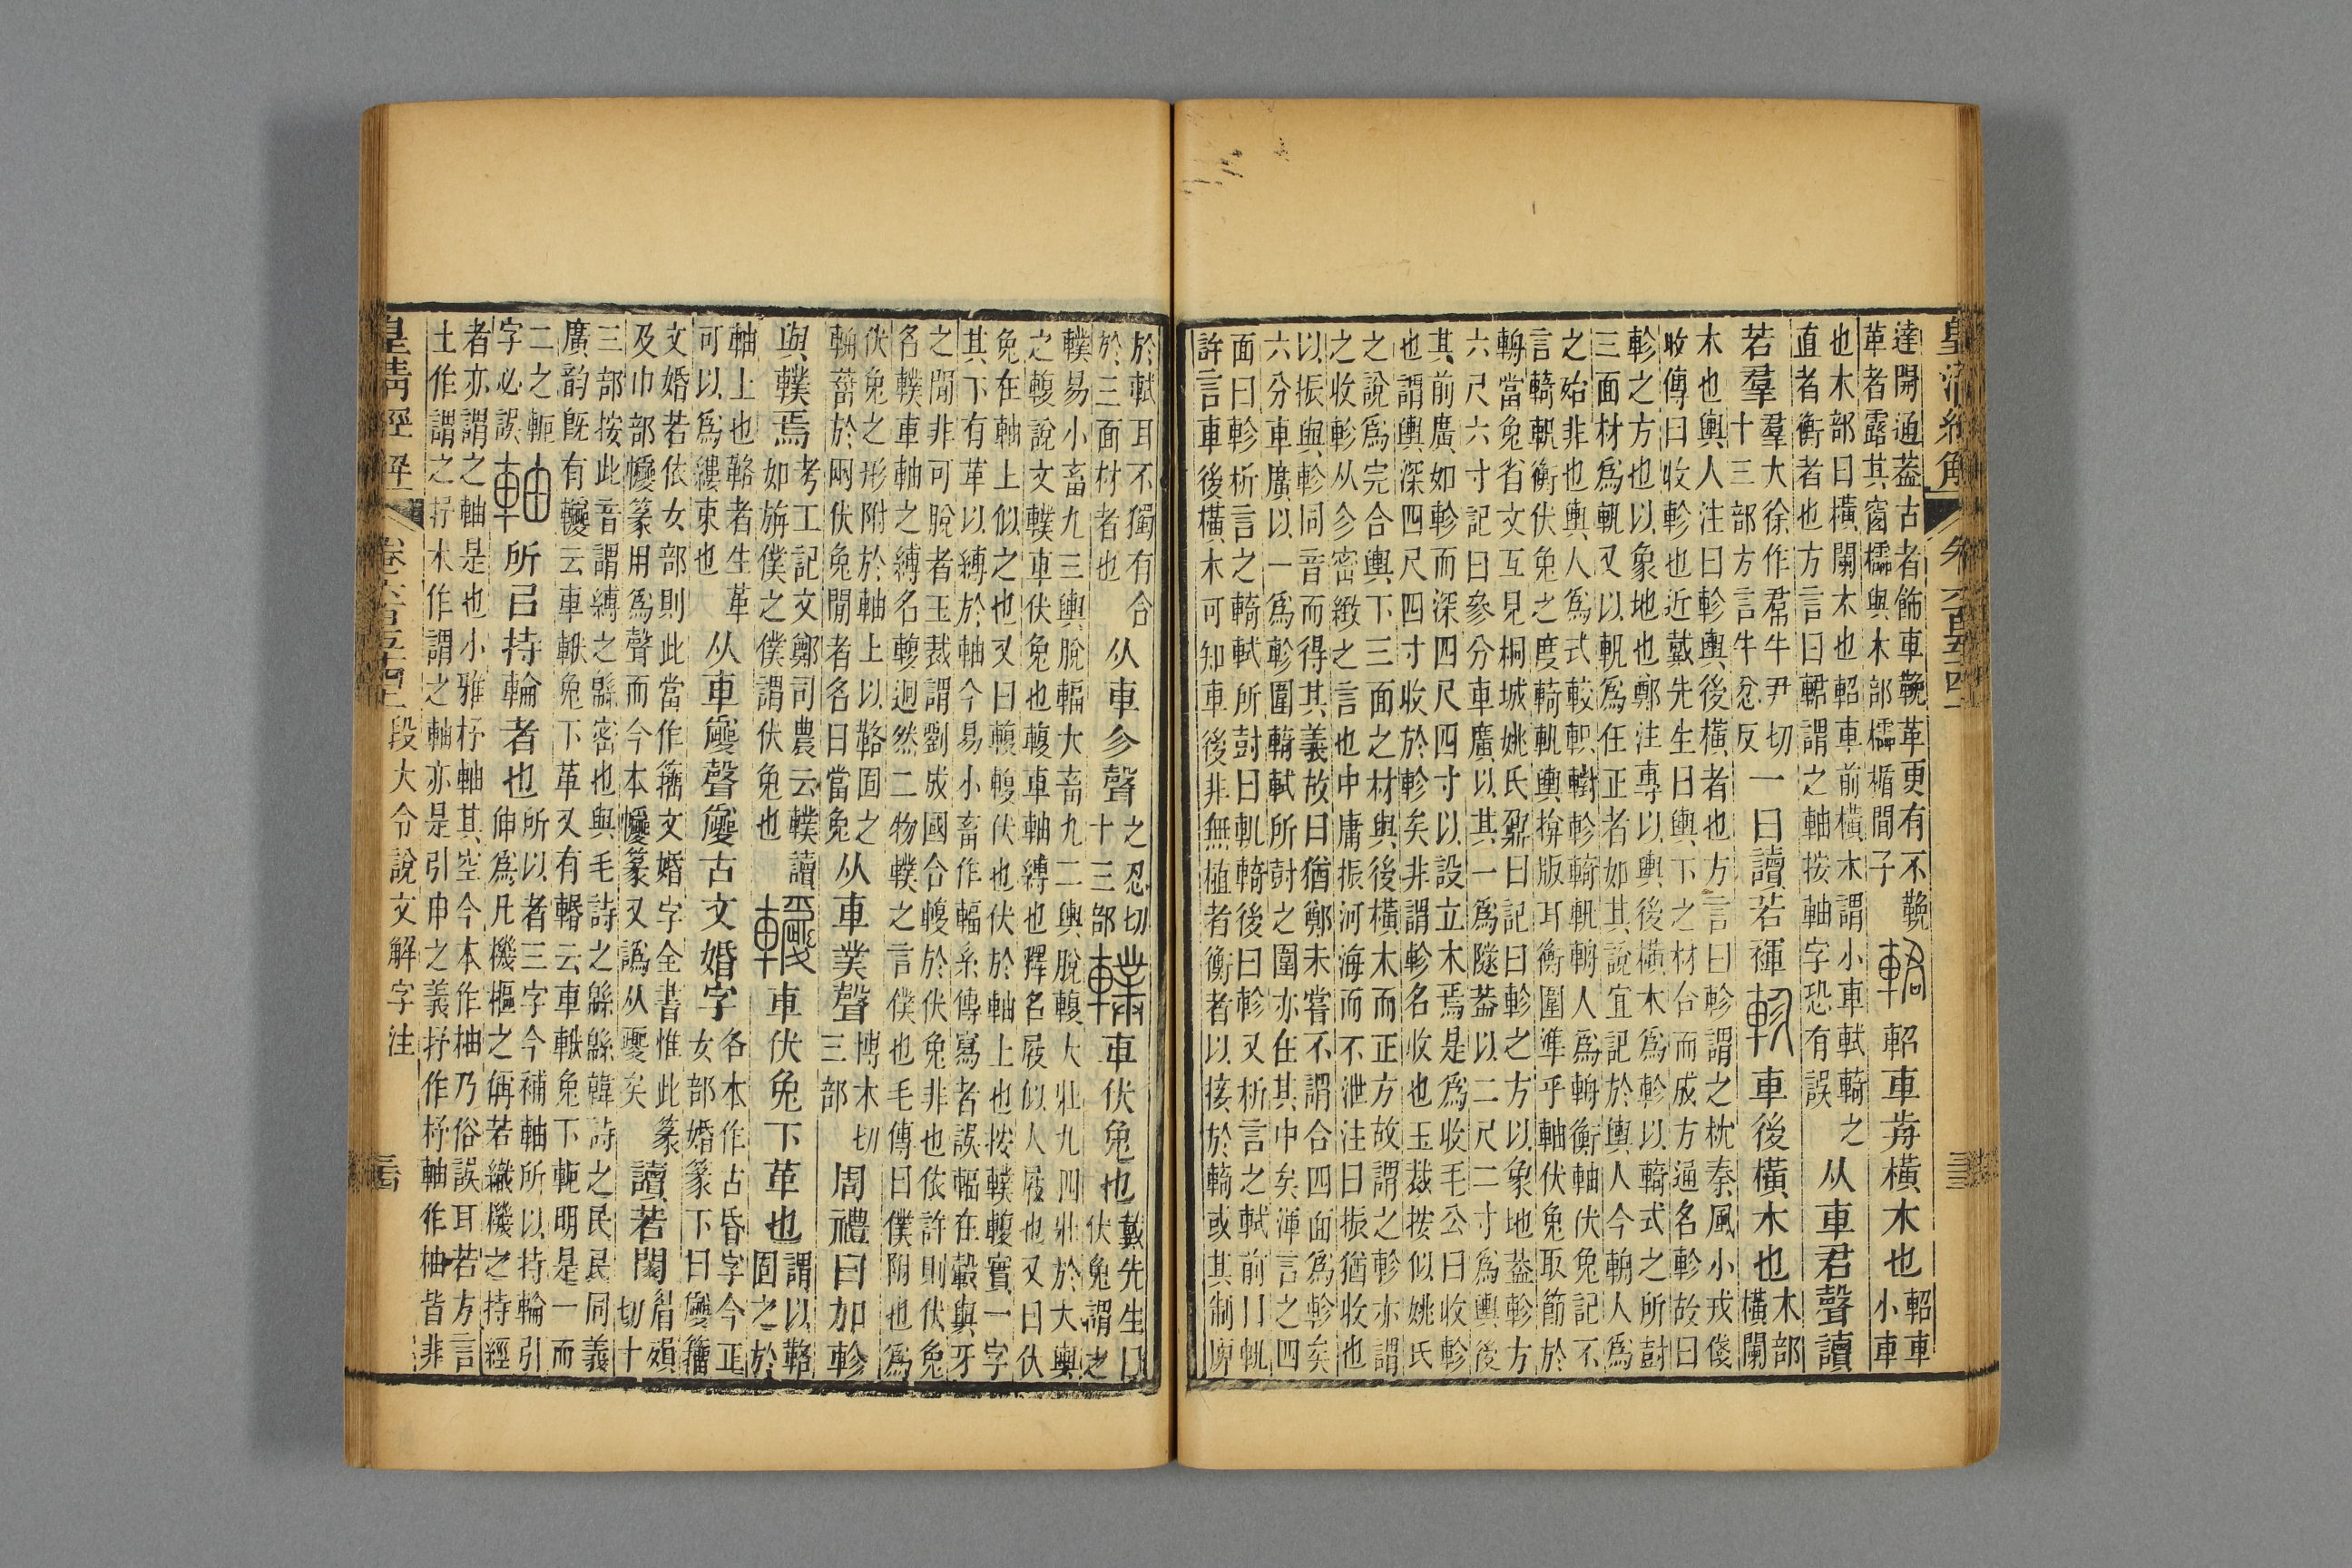 皇清經解 卷六百五十四
達開通葢古者飾車鞔革更有不鞔
革者露其窗櫺與木部櫺楯閒子
輑 軺車歬橫木也
軺車
小車
也木部曰橫闌木也軺車前橫木謂小車軾輢之
直者衡者也方言曰軺謂之軸按軸字恐有誤
从車君聲讀
若羣
羣大徐作帬牛尹切
十三部方言牛忿反
一曰讀若褌 軫 車後橫木也
木部
橫闌
木也輿人注曰軫輿後橫者也方言曰軫謂之枕秦風小戎俴
收傳曰收軫也近戴先生曰輿下之材合而成方通名軫故曰
軫之方也以象地也鄭注專以輿後橫木爲軫以輢式之所尌
三面材爲軓又以軓爲任正者如其說宜記於輿人今輈人爲
之殆非也輿人爲式較軹轛軫輢軓輈人爲輈衡軸伏兔記不
言輢軓衡伏兔之度輢軓輿揜版耳衡圍準乎軸伏兔取節於
輈當兔省文互見桐城姚氏鼐曰記曰軫之方以象地葢軫方
六尺六寸記曰參分車廣以其一爲隧葢以二尺二寸爲輿後
其前廣如軫而深四尺四寸以設立木焉是爲收毛公曰收軫
也謂輿深四尺四寸收於軫矣非謂軫名收也玉裁按似姚氏
之說爲完合輿下三面之材與後橫木而正方故謂之軫亦謂
之收軫从㐱密緻之言也中庸振河海而不泄注曰振猶收也
以振與軫同音而得其義故曰猶鄭未嘗不謂合四面爲軫矣
六分車廣以一爲軫圍輢軾所尌之圍亦在其中矣渾言之四
面曰軫析言之輢軾所尌曰軓輢後曰軫又析言之軾前曰軓
許言車後橫木可知車後非無植者衡者以接於輢或其制庳
於軾耳不獨有合
於三面材者也
从車㐱聲
之忍切
十三部
轐 車伏兔也
戴先生曰
伏兔謂之
轐易小畜九三輿脫輻大畜九二輿脫輹大壯九四壯於大輿
之輹說文轐車伏兔也輹車軸縛也釋名屐似人屐也又曰伏
兔在軸上似之也又曰輹輹伏也伏於軸上也按轐輹實一字
其下有革以縛於軸今易小畜作輻系傳寫者誤輻在轂與牙
之閒非可脫者玉裁謂劉成國合輹於伏兔非也依許則伏兔
名轐車軸之縛名輹迥然二物轐之言僕也毛傳曰僕附也爲
伏兔之形附於軸上以鞈固之
輈菑於兩伏兔閒者名曰當兔
从車菐聲
博木切
三部
周禮曰加軫
與轐焉
考工記文鄭司農云轐讀
如旃僕之僕謂伏兔也
車伏兔下革也
謂以鞈
固之於
軸上也鞈者生革
可以爲縷束也
从車聲古文婚字
各本作古昏字今正
女部婚篆下曰籒
文婚若依女部則此當作籒文婚字全書惟此篆
及巾部篆用爲聲而今本篆又譌从夒矣
讀若閔
眉殞
切十
三部按此音謂縛之緜密也與毛詩之緜緜韓詩之民民同義
廣韵旣有云車兔下革又有云車兔下軛明是一而
二之軛
字必誤
軸 所㠯持輪者也
所以者三字今補軸所以持輪引
伸爲凡機樞之偁若織機之持經
者亦謂之軸是也小雅杼軸其空今本作柚乃俗誤耳若方言
土作謂之杼木作謂之軸亦是引申之義抒作杼軸作柚皆非
皇清經解 卷六百五十四 段大令說文解字注